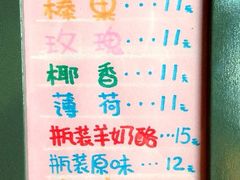 榛果···11元
玫瑰···11元
椰香···11元
薄荷···11元
瓶装羊奶酪···15元
瓶装原味···12元